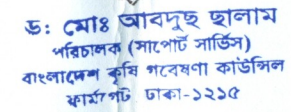 ড: মোঃ আবদুছ ছালাম
পরিচালক (সাপোর্ট সার্ভিস)
বাংলাদেশ কৃষি গবেষণা কাউন্সিল
ফার্মগেট ঢাকা-১২১৫